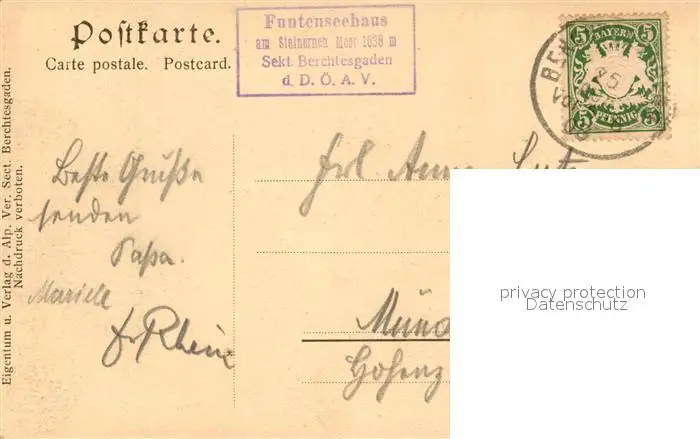 Postkarte.
Carte postale. Postcard.
Funtenseehaus
am Steinernen Meer 1638 m
Sekt. Berchtesgaden
d. D. Ö. A. V.
5 BAYERN 5
5 PFENNIG 5
Eigentum u. Verlag d. Alp. Ver. Sect. Berchtesgaden.
Nachdruck verboten.
Beste Grüße
senden
Papa.
Mariele
Frl. Anna
Münc
Hohenz
privacy protection
Datenschutz